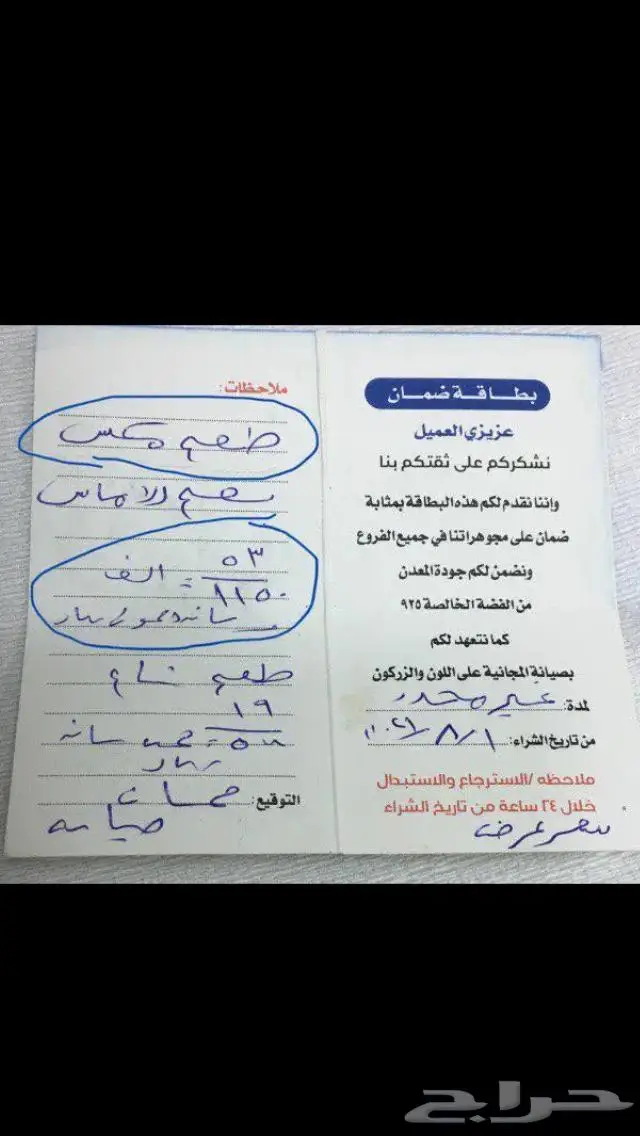 بطاقة ضمان
عزيزي العميل
نشكركم على ثقتكم بنا
واننا نقدم لكم هذه البطاقة بمثابة
ضمان على مجوهراتنا في جميع الفروع
ونضمن لكم جودة المعدن
من الفضة الخالصة ٩٢٥
كما نتعهد لكم
بصيانة المجانية على اللون والزركون
لمدة: غير محدد
من تاريخ الشراء: ٢٠٢١/٨/١
ملاحظه / الاسترجاع والاستبدال
خلال ٢٤ ساعة من تاريخ الشراء
سعر عرض
ملاحظات:
طقم مكس
طقم الاماس
٥٣
١١٥٠ = الف
طقم
١٩
ريال
التوقيع:
صيانه
حراج